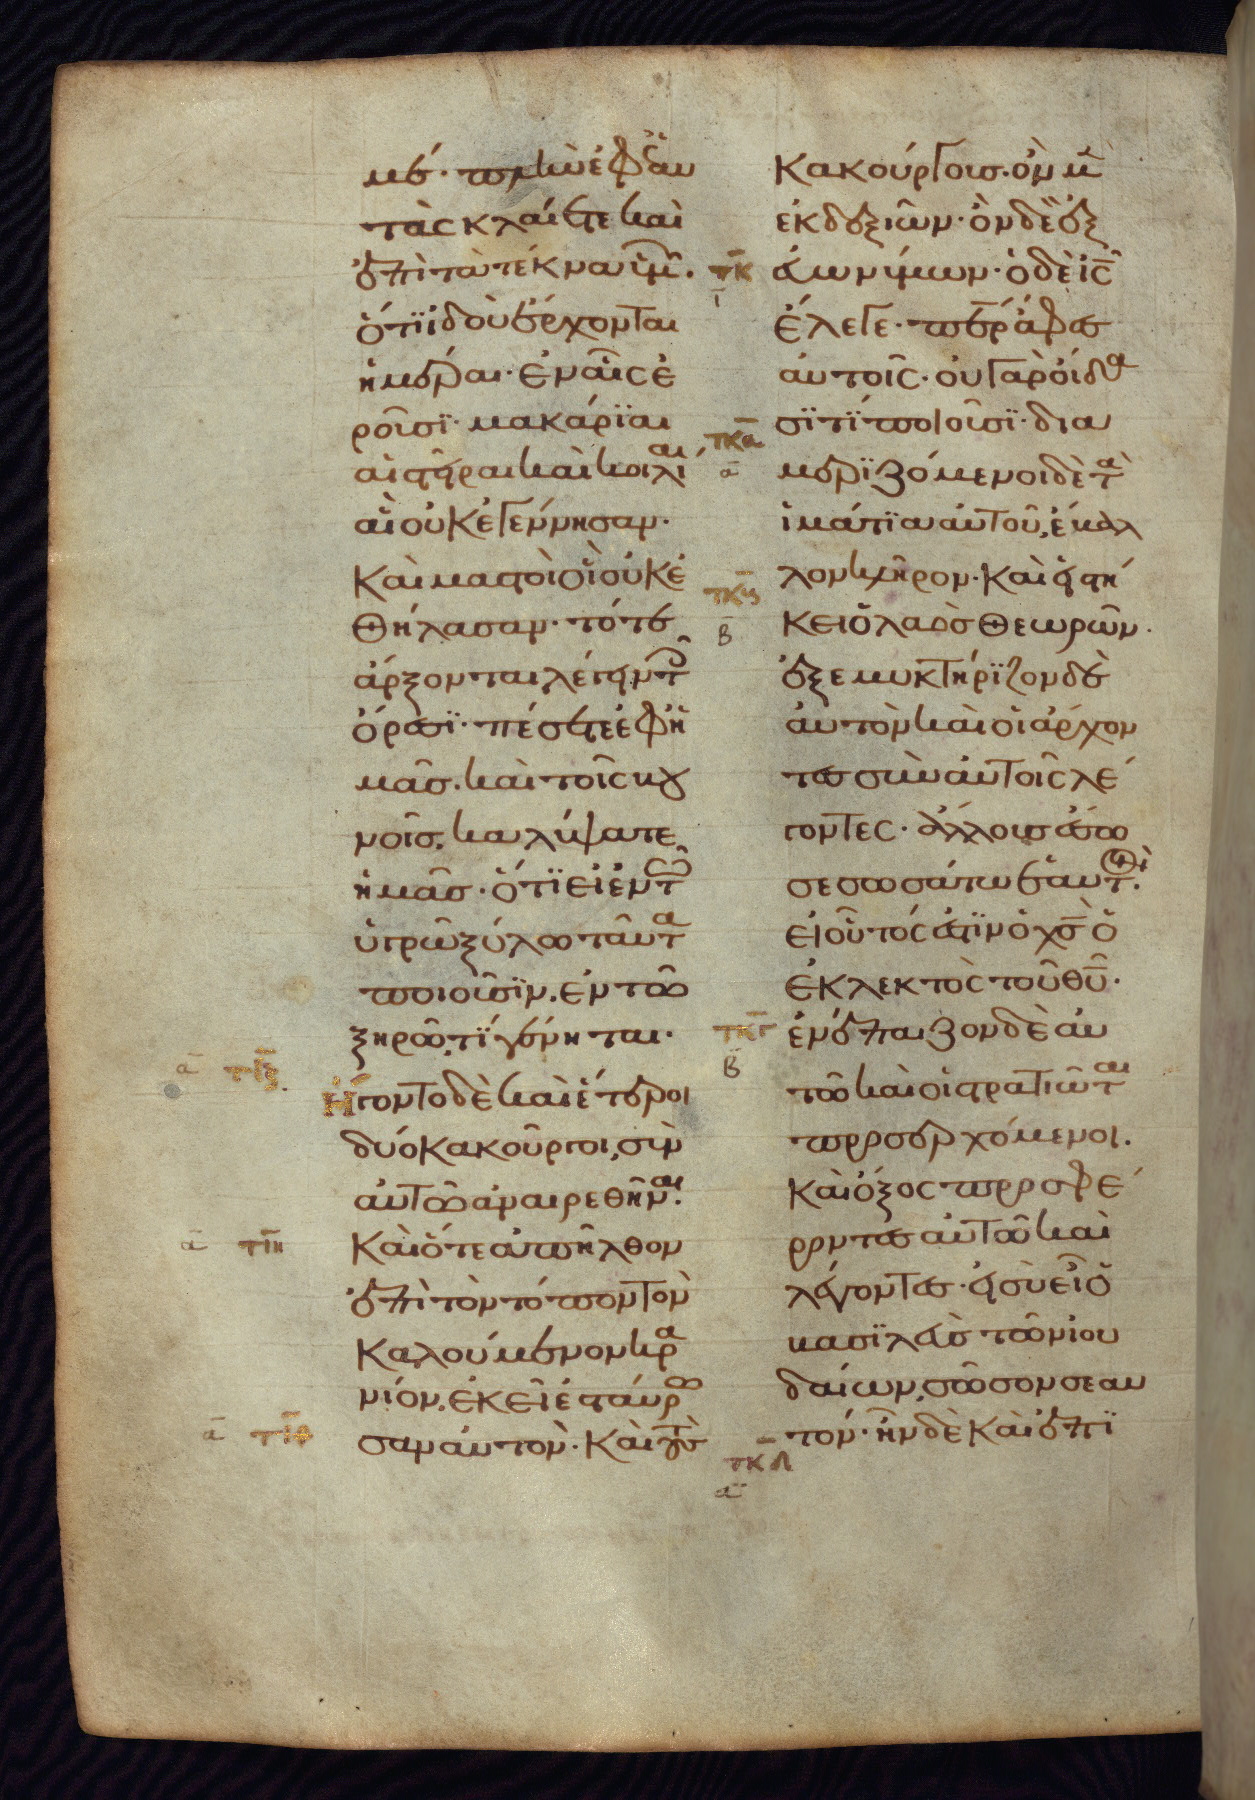 μέ· πλὴν ἐφ ἑαυ
τὰς κλαίετε καὶ
ἐπὶ τὰ τέκνα ὑμῶν.
ὅτι ἰδοὺ ἔρχονται
ἡμέραι· ἐν αἷς ἐ
ροῦσϊ· μακάριαι
αἱ στεῖραι καὶ κοιλίαι
αἳ οὐκ ἐγέννησαν·
Καὶ μαστοὶ οἳ οὐκ ἐ
θήλασαν· τότε
ἄρξονται λέγειν τοῖς
ὄρεσϊ· πέσετε ἐφ ἡ
μᾶς. καὶ τοῖς βου
νοῖς, καλύψατε
ἡμᾶς· ὅτϊ εἰ ἐν τῷ
ὑγρῷ ξύλω ταῦτα
ποιοῦσϊν. ἐν τῷ
ξηρῷ τϊ γένηται·
Ἤγοντο δὲ καὶ ἕτεροι
δύο κακοῦργοι, σὺν
αὐτῷ ἀναιρεθῆναι.
Καὶ ὅτε ἀπῆλθον
ἐπὶ τὸν τόπον τὸν
καλούμενον κρα
νίον, ἐκεῖ ἐσταύρω
σαν αὐτὸν· Καὶ τοὺς
κακούργους· ὃν μὲν
ἐκ δεξιῶν· ὃν δὲ ἐξ
εὐωνύμων· ὁ δὲ ις
ἔλεγε· περ ἄφες
αὐτοῖς· οὐ γὰρ οἴδα
σϊ τί ποιοῦσϊ· δια
μερϊζόμενοι δὲ τὰ
ἱμάτϊα αὐτοῦ, ἔβαλ
λον κλῆρον· Καὶ εἱστή
κει ὁ λαὸς θεωρῶν·
ἐξεμυκτήρϊζον δὲ
αὐτὸν καὶ οἱ ἄρχον
τες σὺν αὐτοῖς λέ
γοντες· ἄλλους ἔσω
σε σωσάτω ἑαυτόν.
εἰ οὗτός ἐστϊν ὁ χς ὁ
ἐκλεκτὸς τοῦ θυ·
ἐνέπαιζον δὲ αὐ
τῷ καὶ οἱ στρατιῶται
προσερχόμενοι.
Καὶ ὄξος προσφέ
ροντες αὐτῷ καὶ
λέγοντες· εἰ σὺ εἶ ὁ
βασϊλεὺς τῶν ἰου
δαίων, σῶσον σεαυ
τόν· ἦν δὲ καὶ ἐπϊ
τιζ
α
τιη
α
τιθ
α
τκ
ι
τκα
α
τκβ
β
τκγ
β
τκδ
α